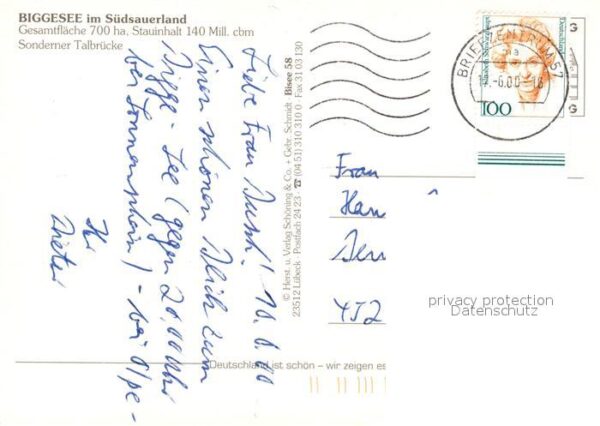 BIGGESEE im Südsauerland
Gesamtfläche 700 ha. Stauinhalt 140 Mill. cbm
Sonderner Talbrücke
Liebe Frau 10.6.00
Einen schönen Blick zum
Bigge-See (gegen 20,00 Uhr
bei Sonnenschein) - bei Olpe -
Ihr
Dieter
© Herst. u. Verlag Schöning & Co. + Gebr. Schmidt · Bisee 58
23512 Lübeck · Postfach 24 23 · ☎ (04 51) 310 310 0 · Fax 31 03 130
Deutschland ist schön – wir zeigen es
BRIEFZENTRUM 57
na
-6.00-18
Deutschland
100
G
G
Frau
Han
452
privacy protection
Datenschutz